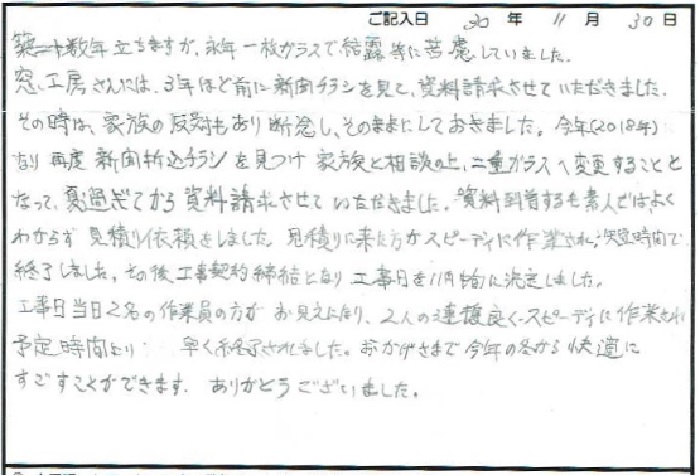 ご記入日 30 年 11 月 30 日
築二十数年立ちますが、永年一枚ガラスで結露等に苦慮していました。
窓工房さんには、3年ほど前に新聞チラシを見て、資料請求させていただきました。
その時は、家族の反対もあり断念し、そのままにしておきました。今年(2018年)
なり再度新聞折込チラシを見つけ家族と相談の上、二重ガラスへ変更することと
なって、夏過ぎてから資料請求させていただきました。資料到着するも素人ではよく
わからず見積り依頼をしました。見積りに来た方がスピーディに作業され、短時間で
終了しました。その後工事契約締結となり工事日を11月中旬に決定しました。
工事日当日2名の作業員の方がお見えになり、2人の連携良くスピーディに作業され
予定時間より 早く終了されました。おかげさまで今年の冬から快適に
すごすことができます。ありがとうございました。